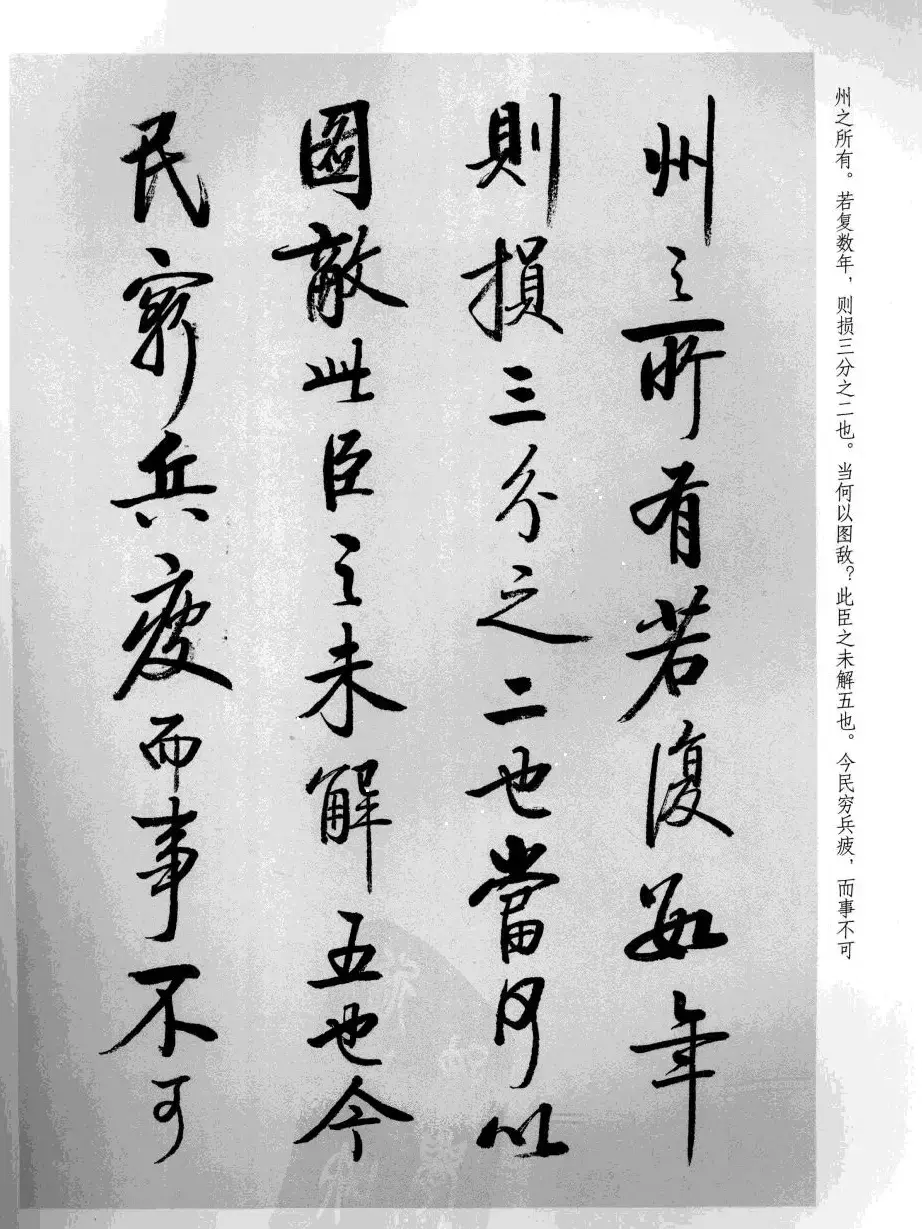 州之所有。若复数年，则损三分之二也。当何以图敌？此臣之未解五也。今民穷兵疲，而事不可
州之所有若復數年
則損三分之二也當何以
圖敵此臣之未解五也今
民窮兵疲而事不可